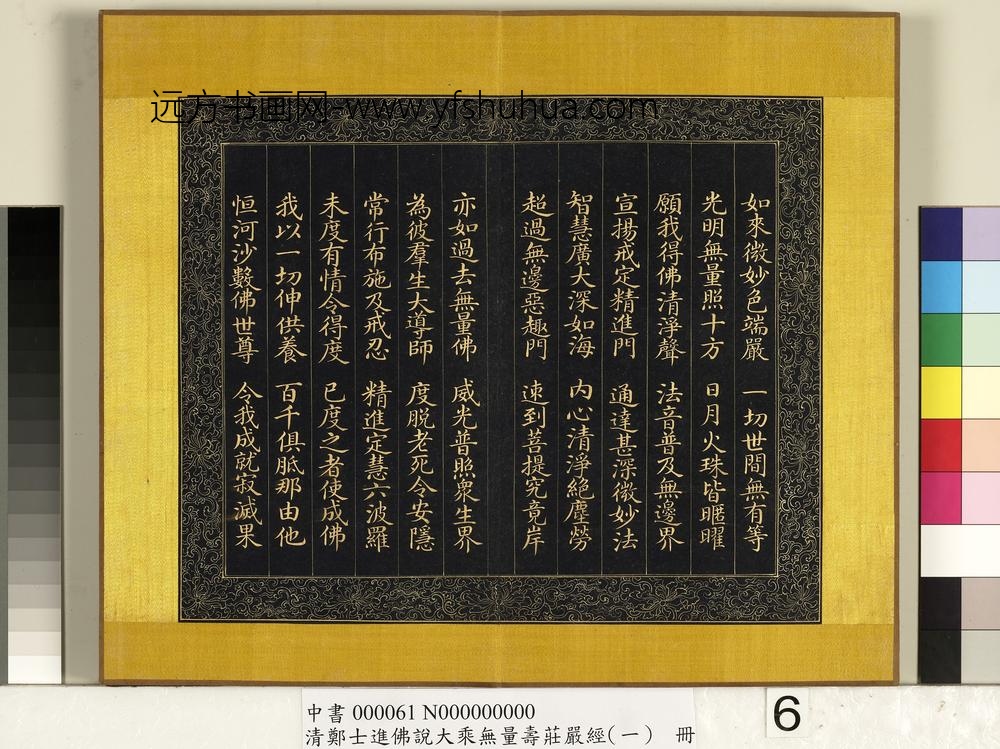 远方书画网-www.yfshuhua.com
如來微妙色端嚴 一切世間無有等
光明無量照十方 日月火珠皆暱曜
願我得佛清淨聲 法音普及無邊界
宣揚戒定精進門 通達甚深微妙法
智慧廣大深如海 內心清淨絕塵勞
超過無邊惡趣門 速到菩提究竟岸
亦如過去無量佛 威光普照眾生界
為彼羣生大導師 度脫老死令安隱
常行布施及戒忍 精進定慧六波羅
未度有情令得度 已度之者使成佛
我以一切伸供養 百千俱胝那由他
恒河沙數佛世尊 令我成就寂滅果
中書 000061 N000000000
清鄭士進佛說大乘無量壽莊嚴經(一) 冊
6